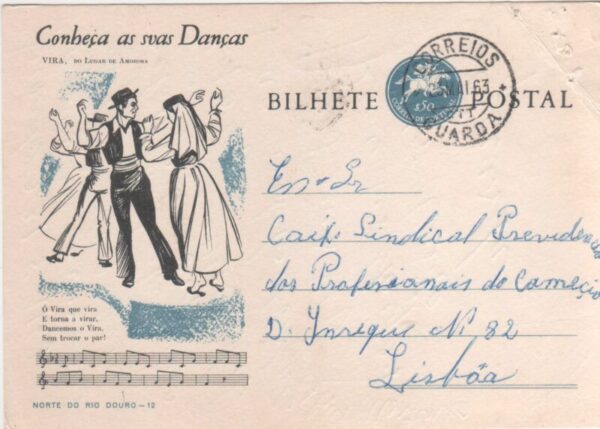 Conheça as svas Danças
VIRA, DO LUGAR DE AMOROSA
BILHETE POSTAL
CORREIOS
63
GUARDA
$50
Ó Vira que vira
E torna a virar,
Dancemos o Vira,
Sem trocar o par!
NORTE DO RIO DOURO — 12
Exmo Sr
Caixa Sindical Previdencia
dos Profissionais do Comércio
D. Inreque Nº 82
Lisbôa